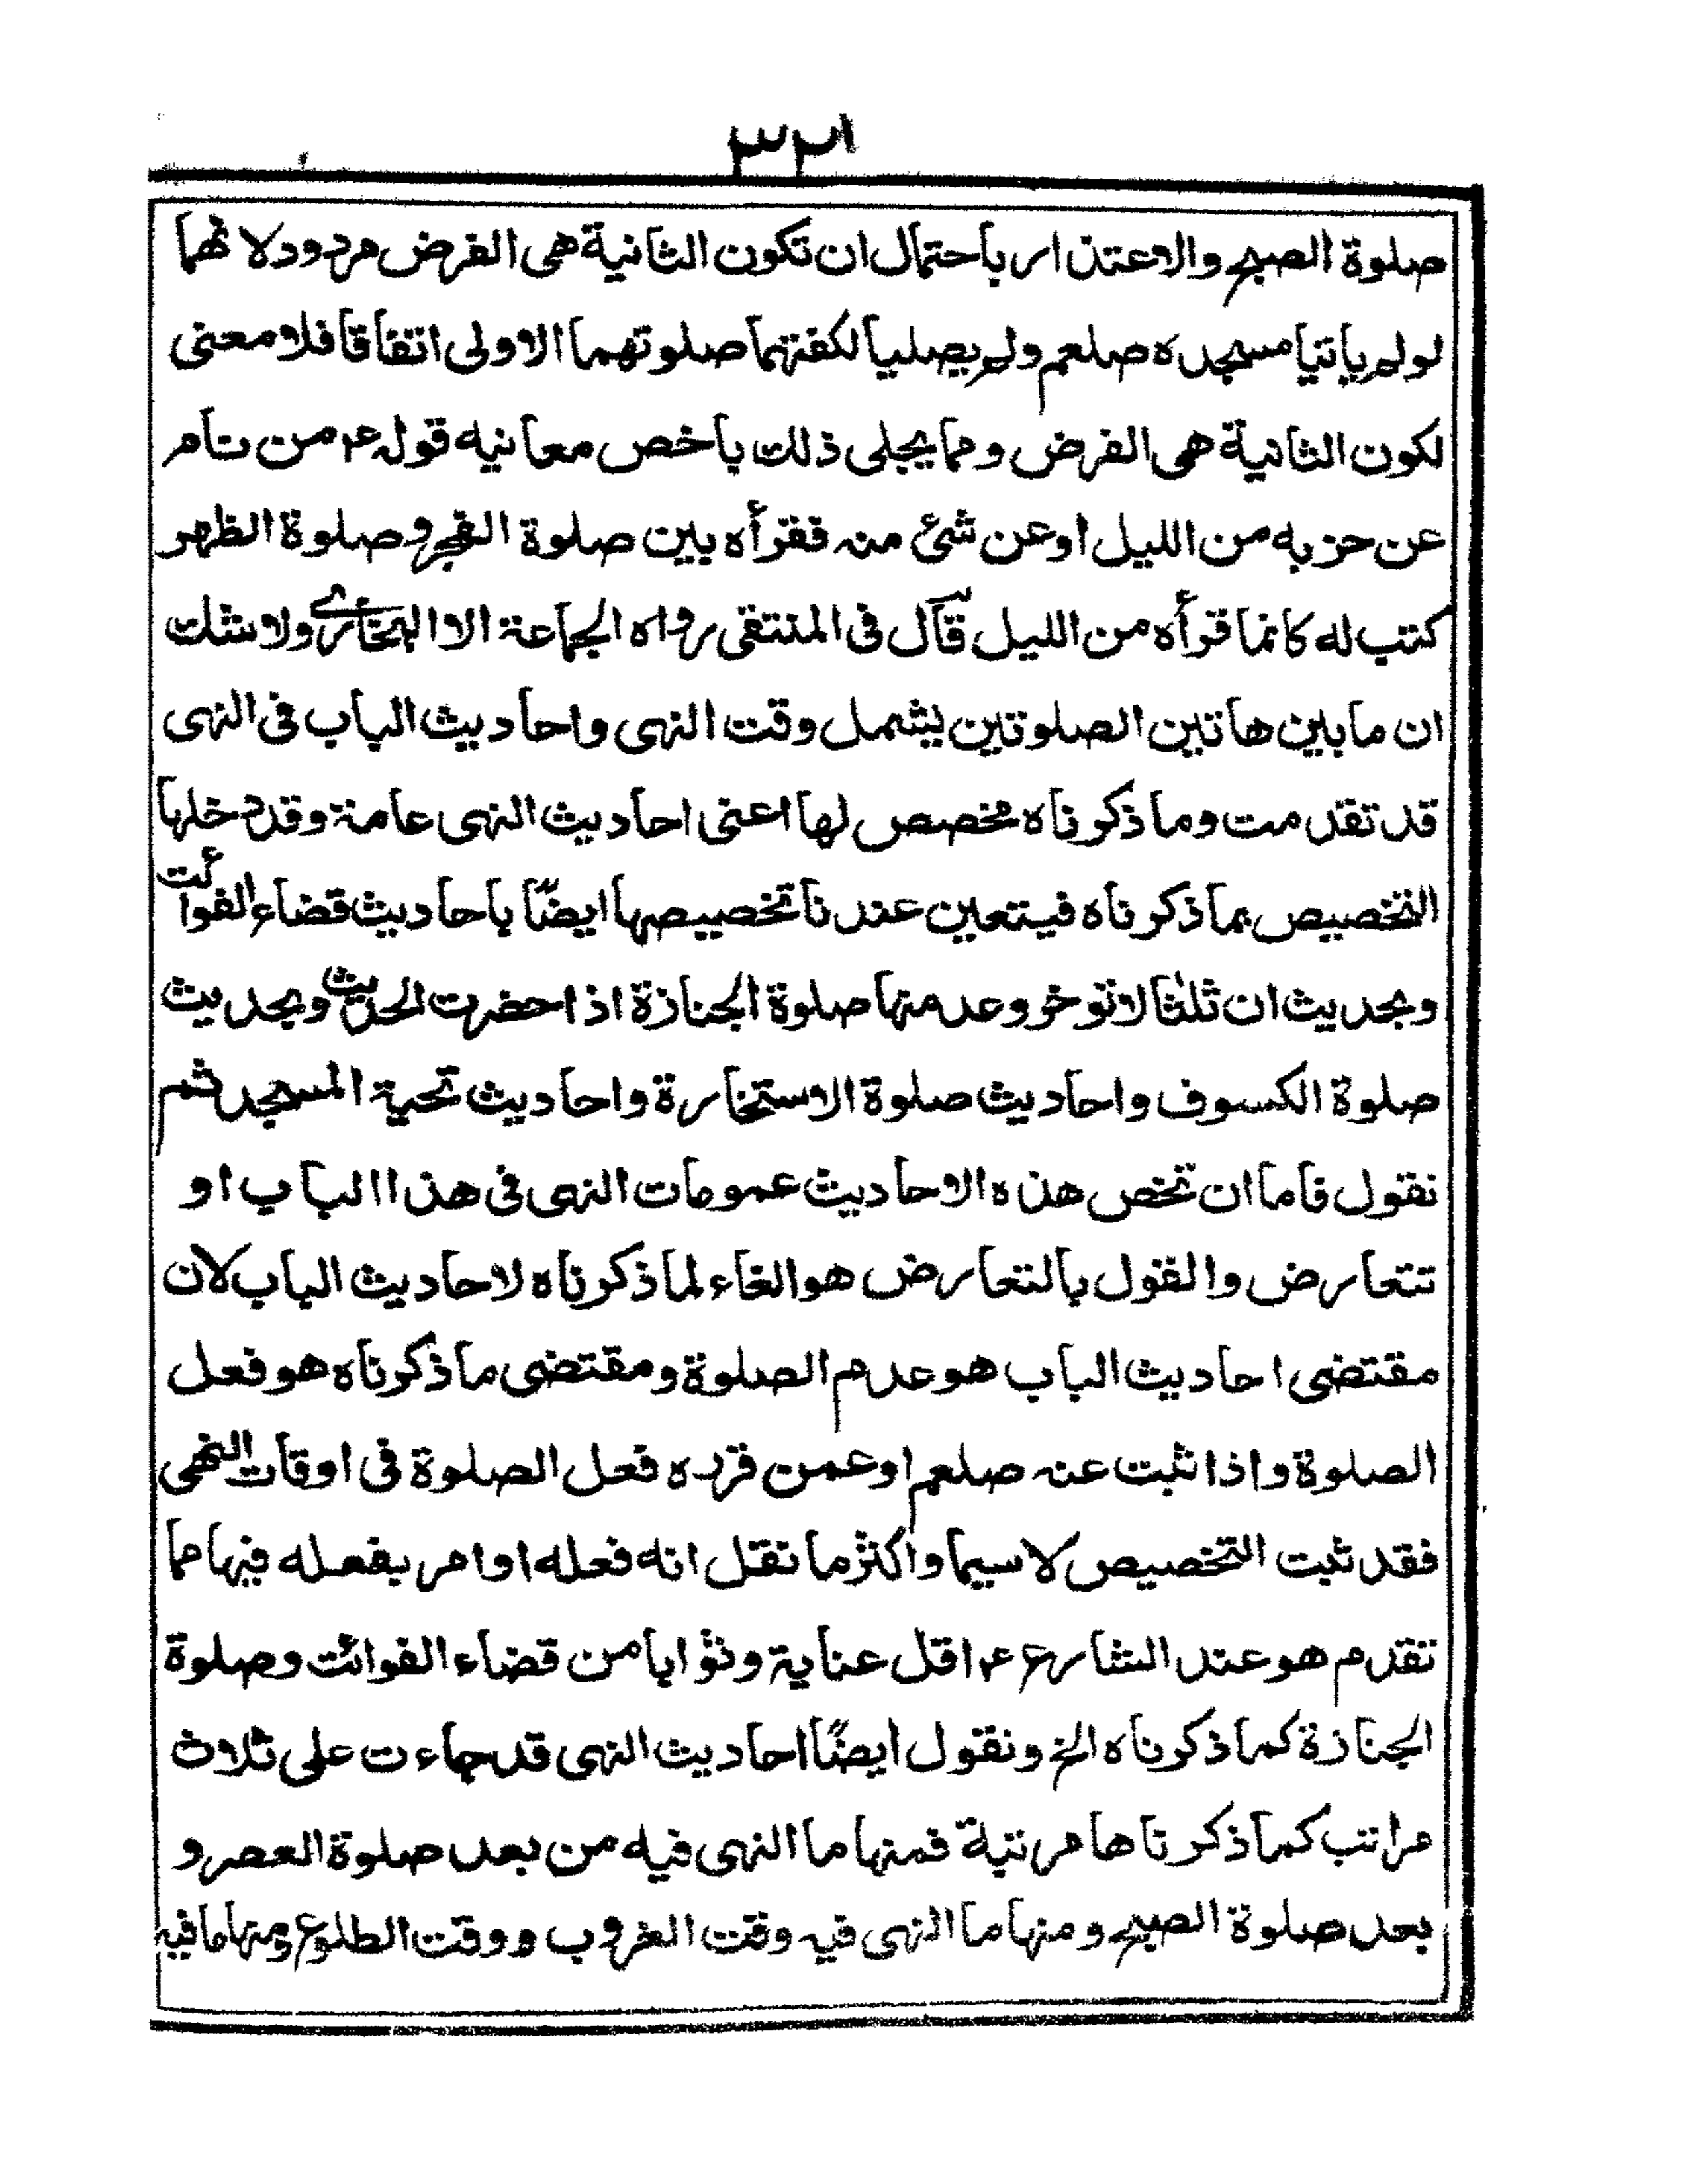 ٣٢١
صلوة الصبح والاعتذار باحتمال ان تكون الثانية هى الفرض مردود لا نهما
لو لم ياتيا مسجده صلعم ولم يصليا لكفتهما صلوتهما الاولى اتفاقا فلا معنى
لكون الثانية هى الفرض ومما يجلى ذلك باخص معانيه قوله عم من نام
عن حزبه من الليل او عن شئ منه فقرأه بين صلوة الفجر وصلوة الظهر
كتب له كانما قرأه من الليل قال فى المنتقى رواه الجماعة الا البخارى ولا شك
ان ما بين هاتين الصلوتين يشمل وقت النهى واحاديث الباب فى النهى
قد تقدمت وما ذكرناه مخصص لها اعنى احاديث النهى عامة وقد دخلها
التخصيص بما ذكرناه فيتعين عندنا تخصيصها ايضًا باحاديث قضاء الفوائت
وبحديث ان ثلثا لا توخر وعد منها صلوة الجنازة اذا حضرت الحديث وبحديث
صلوة الكسوف واحاديث صلوة الاستخارة واحاديث تحية المسجد ثم
نقول فاما ان تخص هذه الاحاديث عمومات النهى فى هذا الباب او
تتعارض والقول بالتعارض هو الغاء لما ذكرناه لاحاديث الباب لان
مقتضى احاديث الباب هو عدم الصلوة ومقتضى ما ذكرناه هو فعل
الصلوة واذا ثبت عنه صلعم او عمن قرره فعل الصلوة فى اوقات النهى
فقد ثبت التخصيص لا سيما واكثر ما نقل انه فعله او امر بفعله فيها مما
تقدم هو عند الشارع عم اقل عناية وثوابا من قضاء الفوائت وصلوة
الجنازة كما ذكرناه الخ ونقول ايضًا احاديث النهى قد جاءت على ثلاث
مراتب كما ذكرناها مرتبة فمنها ما النهى فيه من بعد صلوة العصر و
بعد صلوة الصبح ومنها ما النهى فيه وقت الغروب ووقت الطلوع ومنها ما فيه